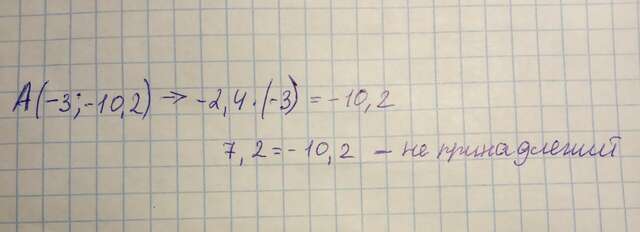 A(-3;-10,2) → -2,4·(-3) = -10,2
7,2=-10,2 – не принадлежит